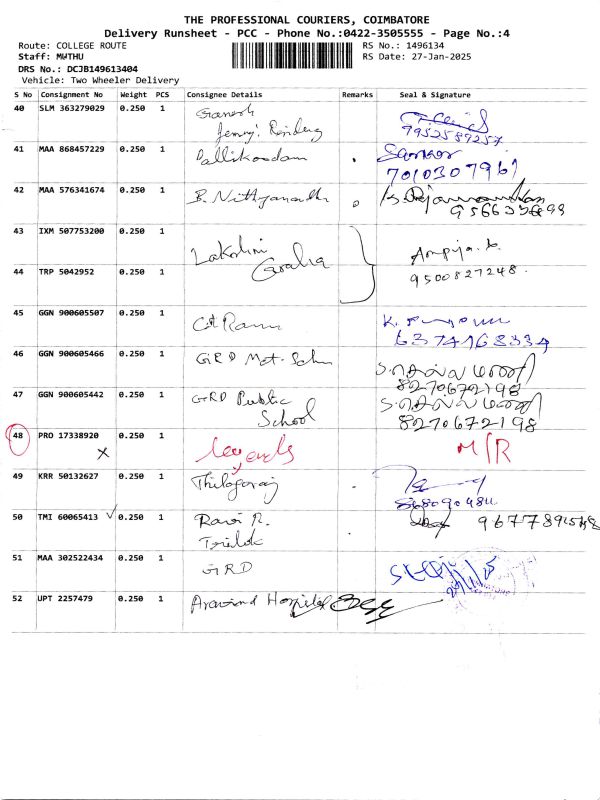 THE PROFESSIONAL COURIERS, COIMBATORE
Delivery Runsheet - PCC - Phone No.:0422-3505555 - Page No.:4
Route: COLLEGE ROUTE RS No.: 1496134
Staff: MWTHU RS Date: 27-Jan-2025
DRS No.: DCJB149613404
Vehicle: Two Wheeler Delivery
S No Consignment No Weight PCS Consignee Details Remarks Seal & Signature
40 SLM 363279029 0.250 1 Ganesh
7952587257
41 MAA 868457229 0.250 1 Pallikoodam Sankar
7010307961
42 MAA 576341674 0.250 1 B. Nithyanandh
43 IXM 507753200 0.250 1 Lakshmi
44 TRP 5042952 0.250 1 9500827248
45 GGN 900605507 0.250 1
6374168334
46 GGN 900605466 0.250 1 GRD Mat. Schn ப.செல்வமணி
8270672198
47 GGN 900605442 0.250 1 GRD Public ப.செல்வமணி
School 8270672198
48 PRO 17338920 0.250 1 legends M/R
X
49 KRR 50132627 0.250 1 Thilagaraj
50 TMI 60065413 0.250 1 Ravi R.
Trilok
51 MAA 302522434 0.250 1 GRD
52 UPT 2257479 0.250 1 Aravind Hospital